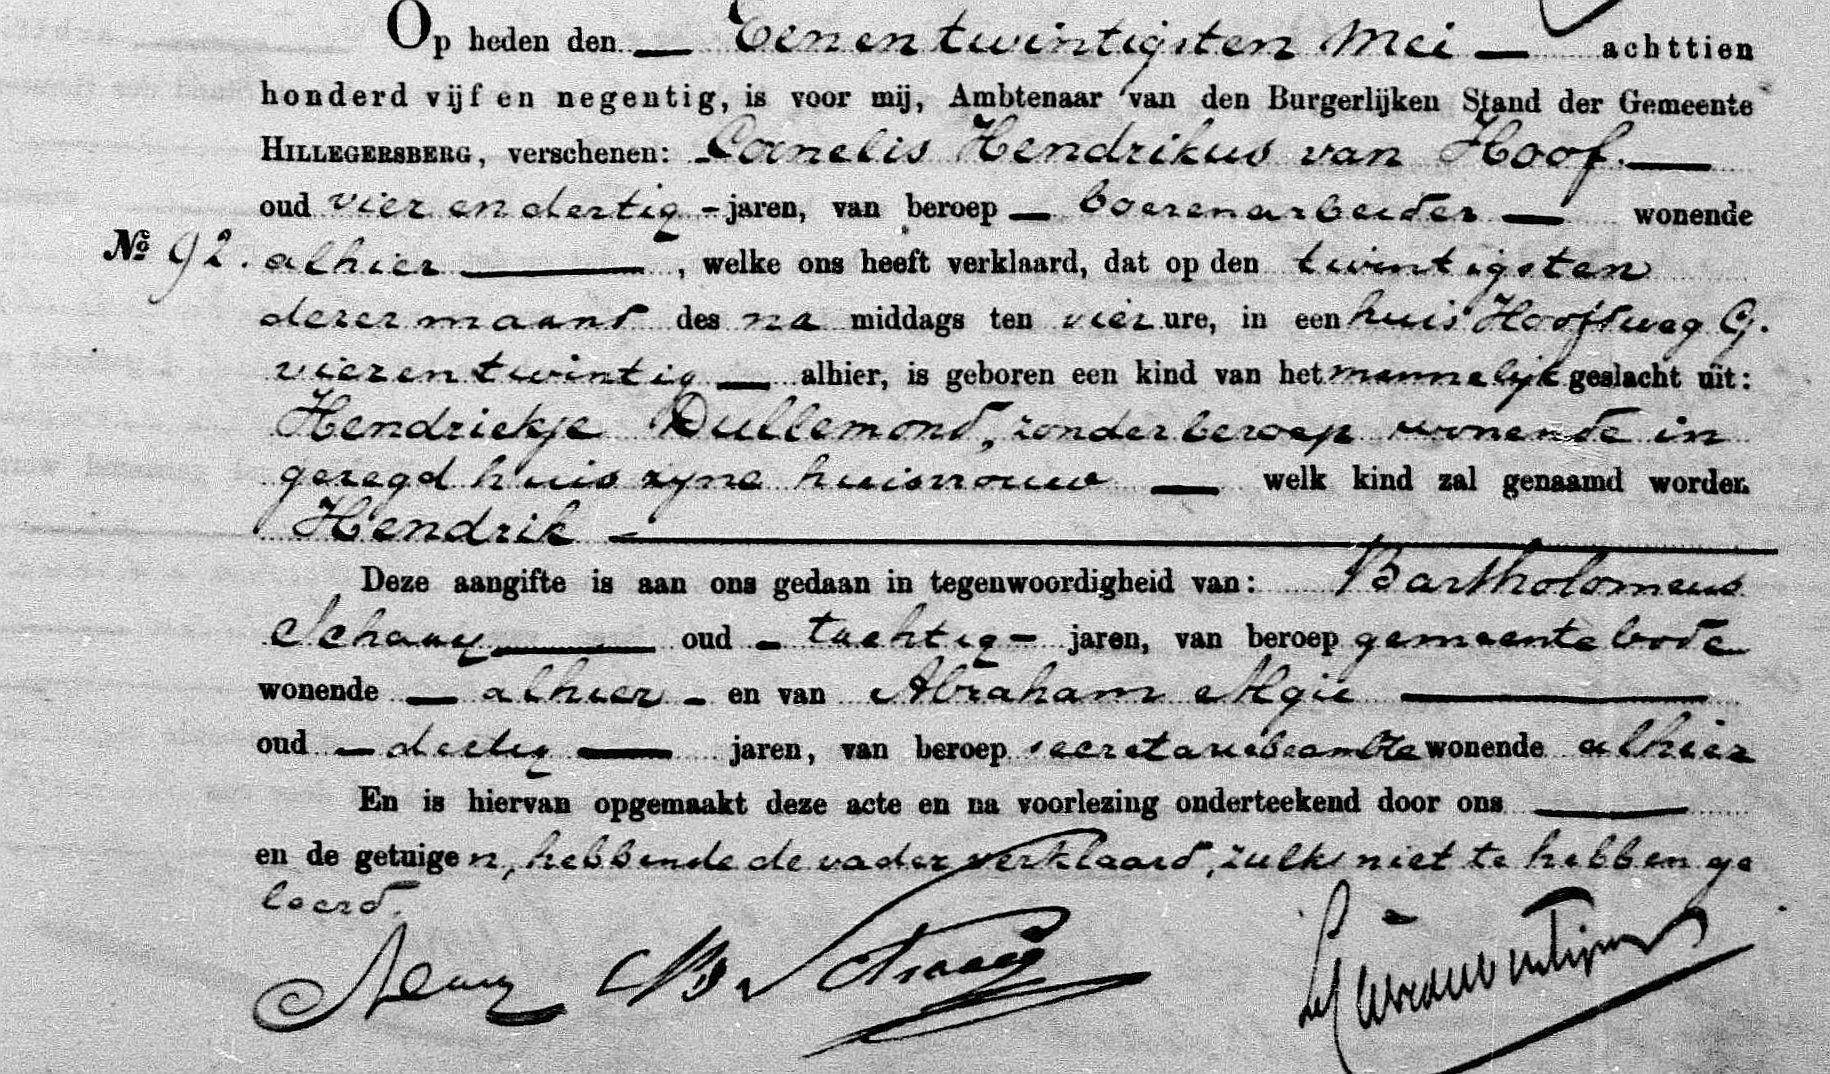 Op heden den — Een en twintigsten Mei — achttien
honderd vijf en negentig, is voor mij, Ambtenaar van den Burgerlijken Stand der Gemeente
HILLEGERSBERG, verschenen: Cornelis Hendrikus van Hoof. —
oud vier en dertig - jaren, van beroep — boerenarbeider — wonende
No 92. alhier —, welke ons heeft verklaard, dat op den twintigsten
dezer maand des na middags ten vier ure, in een huis Hoofdweg G.
vier en twintig — alhier, is geboren een kind van het mannelijk geslacht uit:
Hendriekje Dullemond, zonder beroep wonende in
gezegd huis zyne huisvrouw — welk kind zal genaamd worden
Hendrik —
Deze aangifte is aan ons gedaan in tegenwoordigheid van: Bartholomeus
Schaay — oud - tachtig - jaren, van beroep gemeentebode
wonende — alhier - en van Abraham Algie —
oud — dertig — jaren, van beroep secretariebeambte wonende alhier
En is hiervan opgemaakt deze acte en na voorlezing onderteekend door ons —
en de getuigen, hebbende de vader verklaard, zulks niet te hebben ge
leerd.
B Schaaij